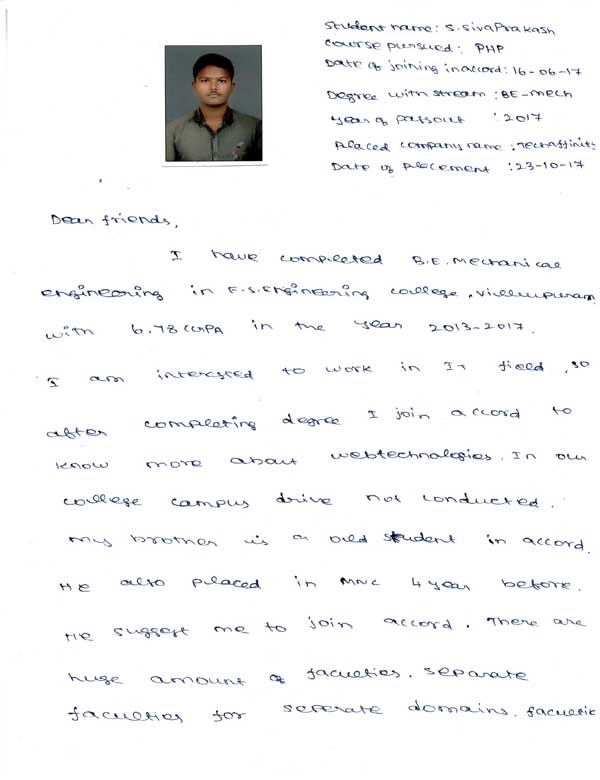 Student name: S.SivaPrakash
Course pursued: PHP
Date of joining in accord: 16-06-17
Degree with stream: BE-Mech
Year of passout : 2017
Placed company name : TechAffinity
Date of placement : 23-10-17
Dear friends,
I have completed B.E. Mechanical
engineering in E.S. Engineering college, villupuram
with 6.78 CGPA in the year 2013-2017.
I am interested to work in IT field, so
after completing degree I join accord to
know more about webtechnologies. In our
college campus drive not conducted.
My brother is a old student in accord.
He also placed in MNC 4 year before.
He suggest me to join accord. There are
huge amount of faculties. Separate
faculties for seperate domains. facultie